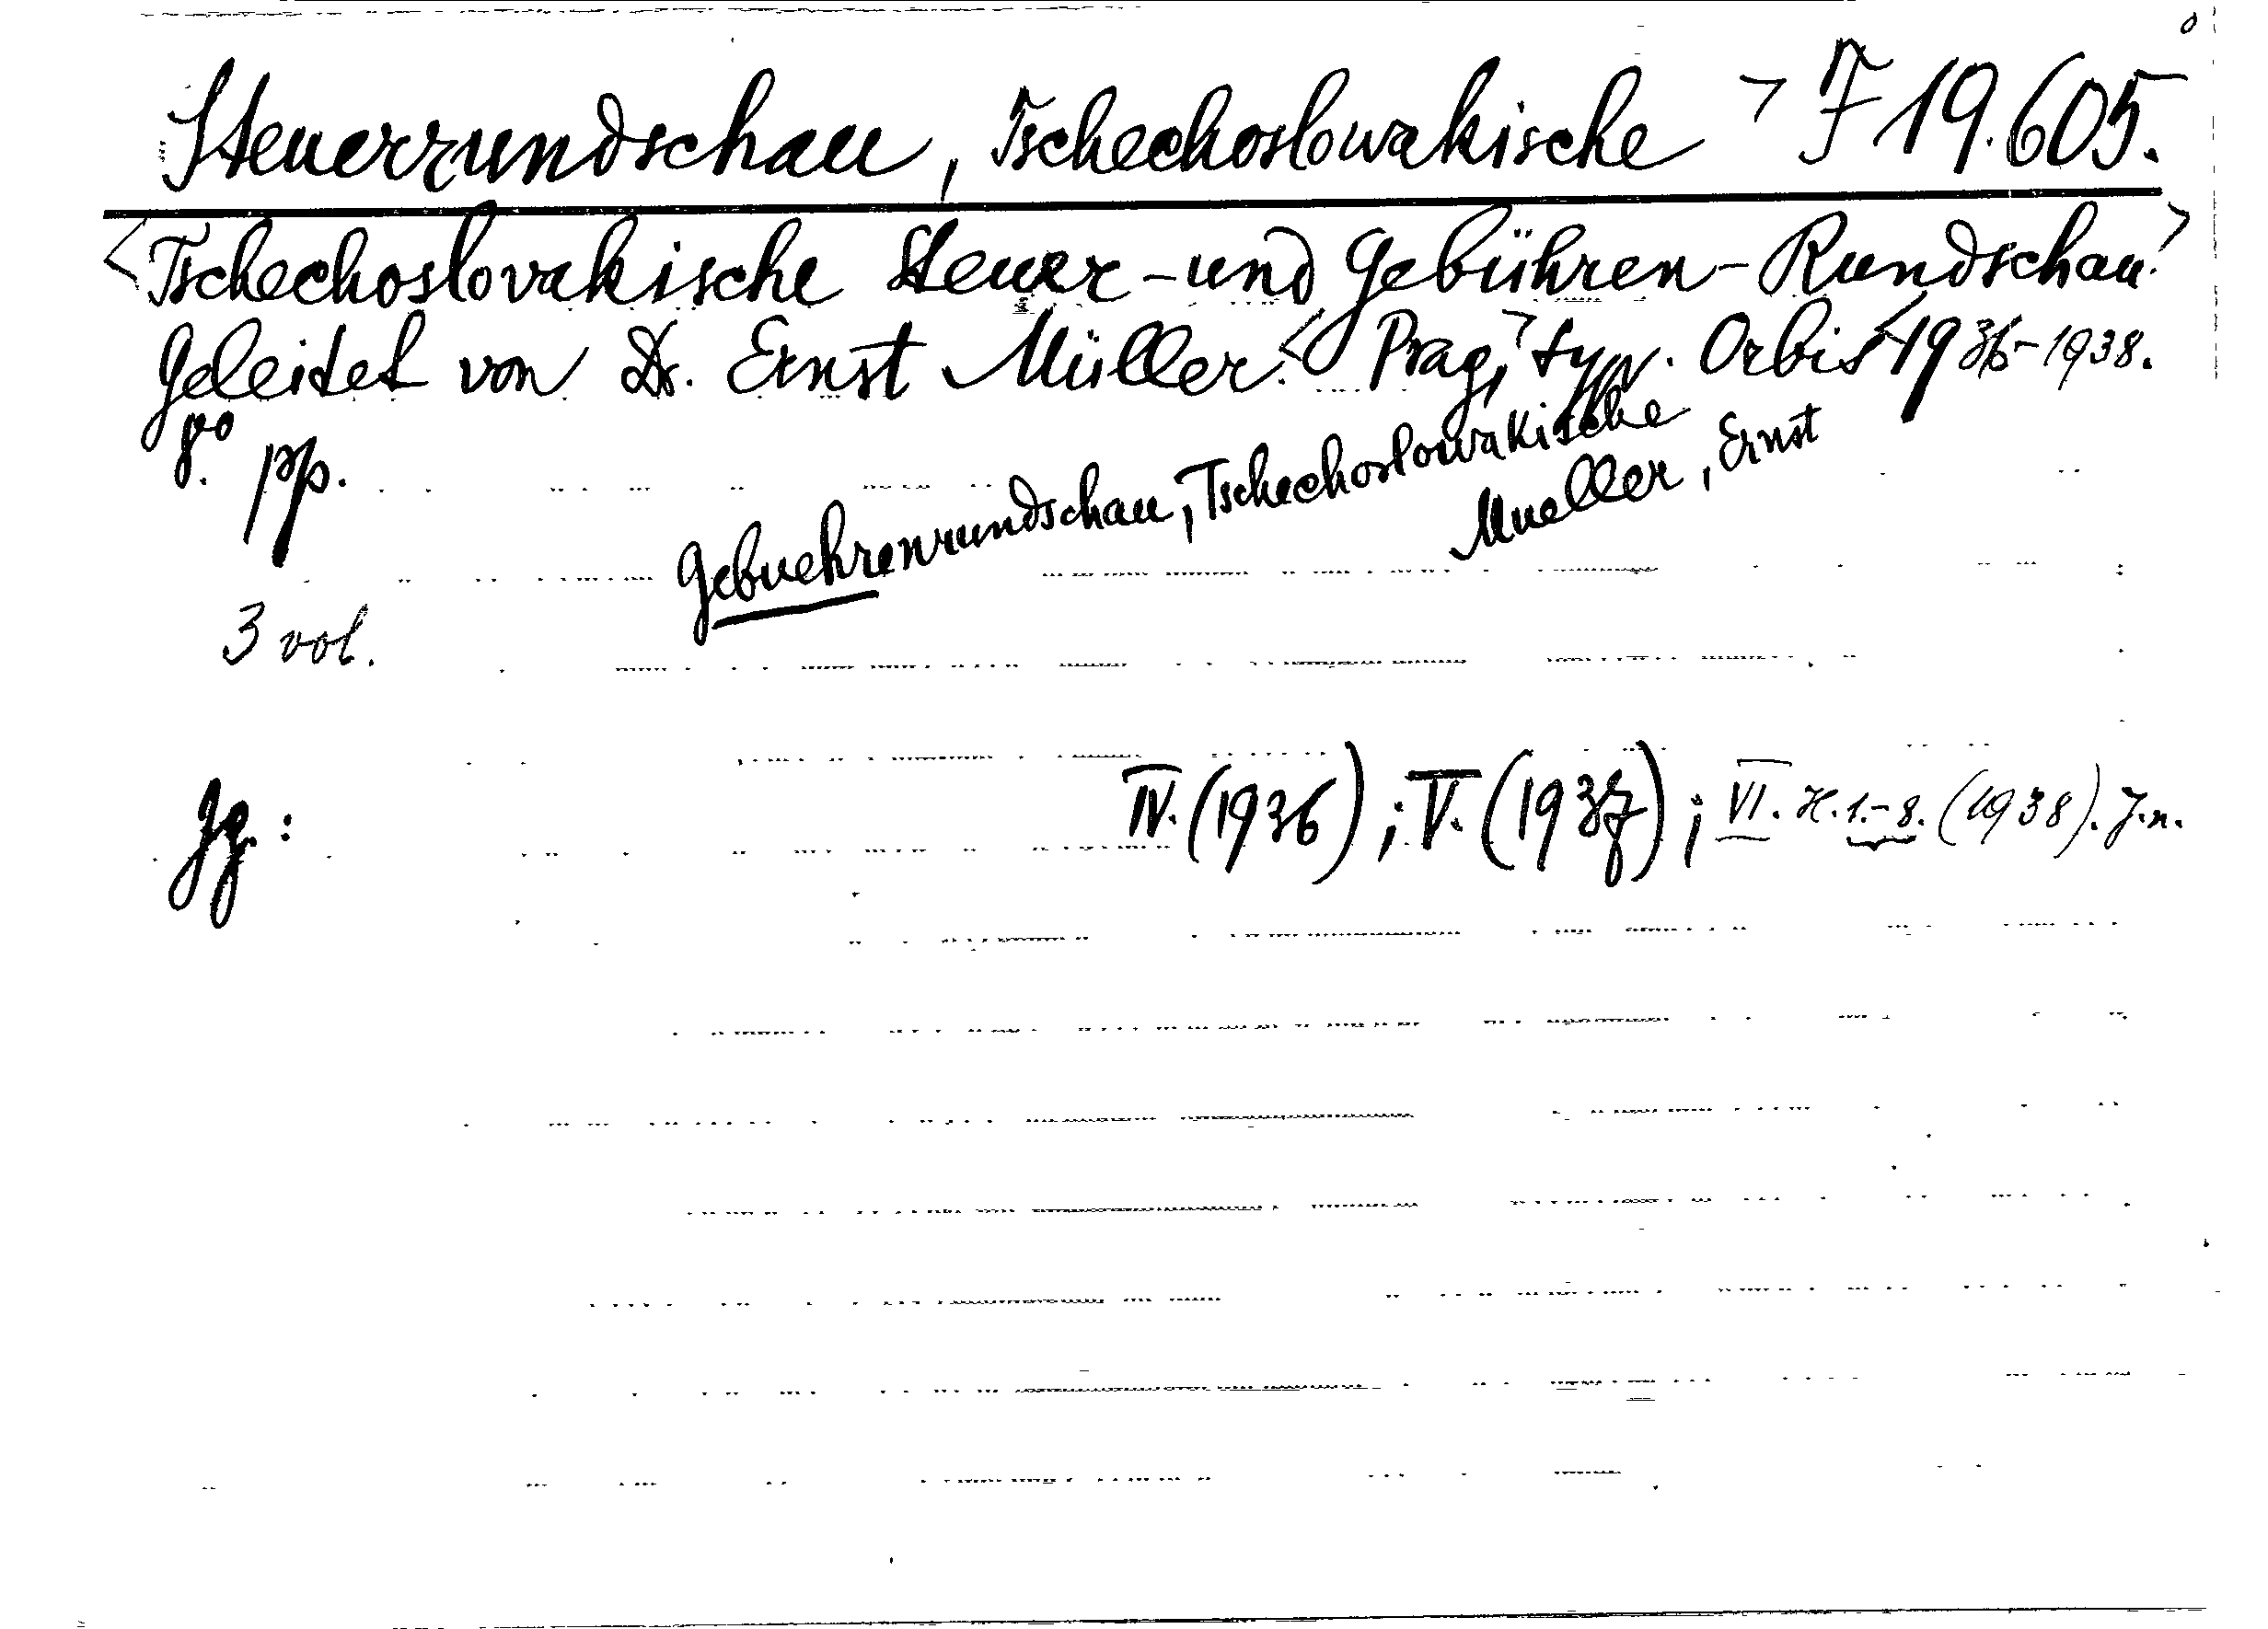 Steuerrundschau, Tschechoslowakische > F 19.605.
<Tschechoslovakische Steuer-und Gebühren-Rundschau.>
Geleitet von Dr. Ernst Müller.< Prag,> typ. Orbis <1936-1938.
8º. pp.
Gebuehrenrundschau, Tschechoslowakische
Mueller, Ernst
3 vol.
Jg.: IV. (1936); V. (1937); VI. H. 1.-8. (1938). J.n.